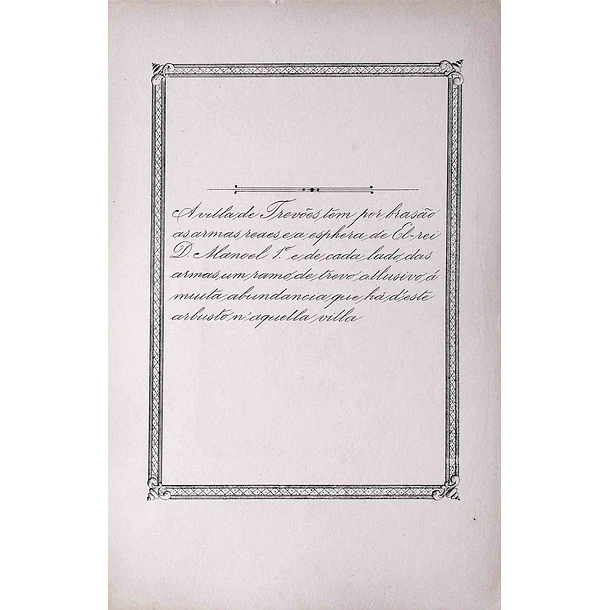 A villa de Trevões tem por brasão
as armas reaes e a esphera de El-rei
D. Manoel 1.º e de cada lado das
armas um ramo de trevo allusivo á
muita abundancia que há d'este
arbusto n'aquella villa